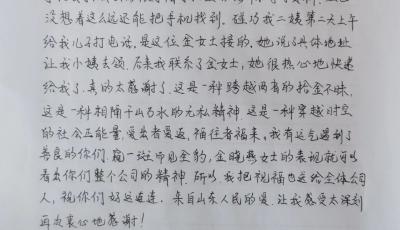 没想着这么远还能把手机找到. 碰巧我二姨第二天上午
给我儿子打电话,是这位金女士接的,她说了具体地址
让我小姨去领.后来我联系了金女士,她很热心地快递
给我了.真的太感谢了.这是一种跨越两省的拾金不昧,
这是一种相隔千山万水的无私精神 这是一种穿越时空
的社会正能量,爱出者爱返,福往者福来,我有运气遇到了
善良的你们.窥一斑而见全豹,金晓燕女士的表现就可以
看出你们整个公司的精神.所以.我把祝福也送给全体公司
人,祝你们好运连连.来自山东人民的爱.让我感受太深刻
再次衷心地感谢!